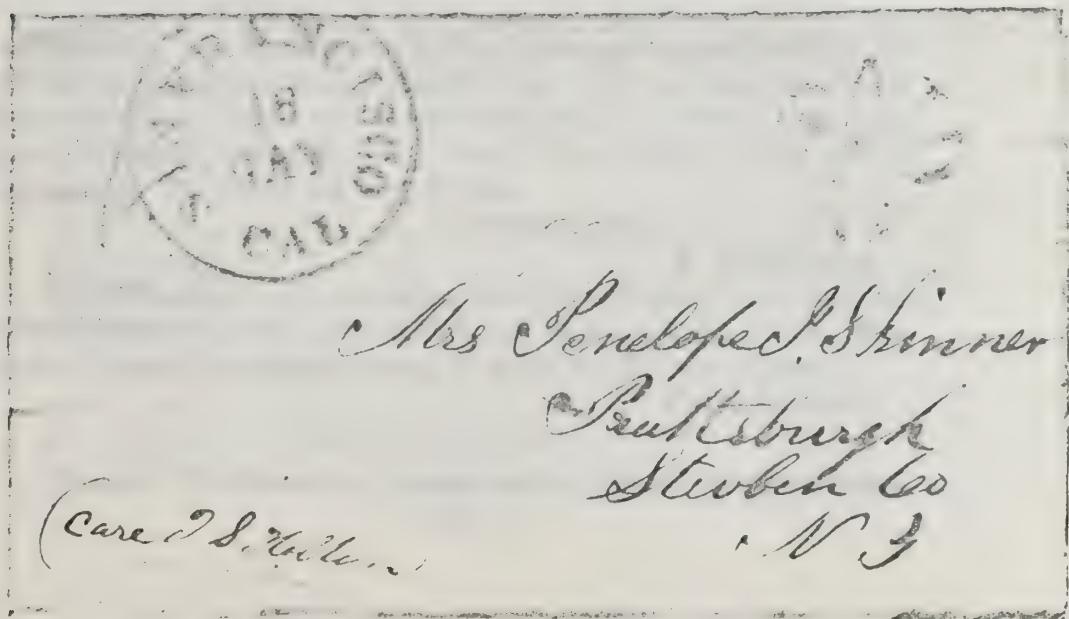 SAN FRANCISCO
18
CAL
Mrs Penelope J. Skinner
Prattsburgh
Steuben Co
N Y
(Care